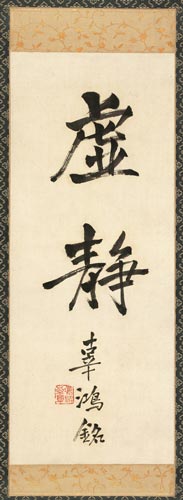 虚静
辜鴻銘